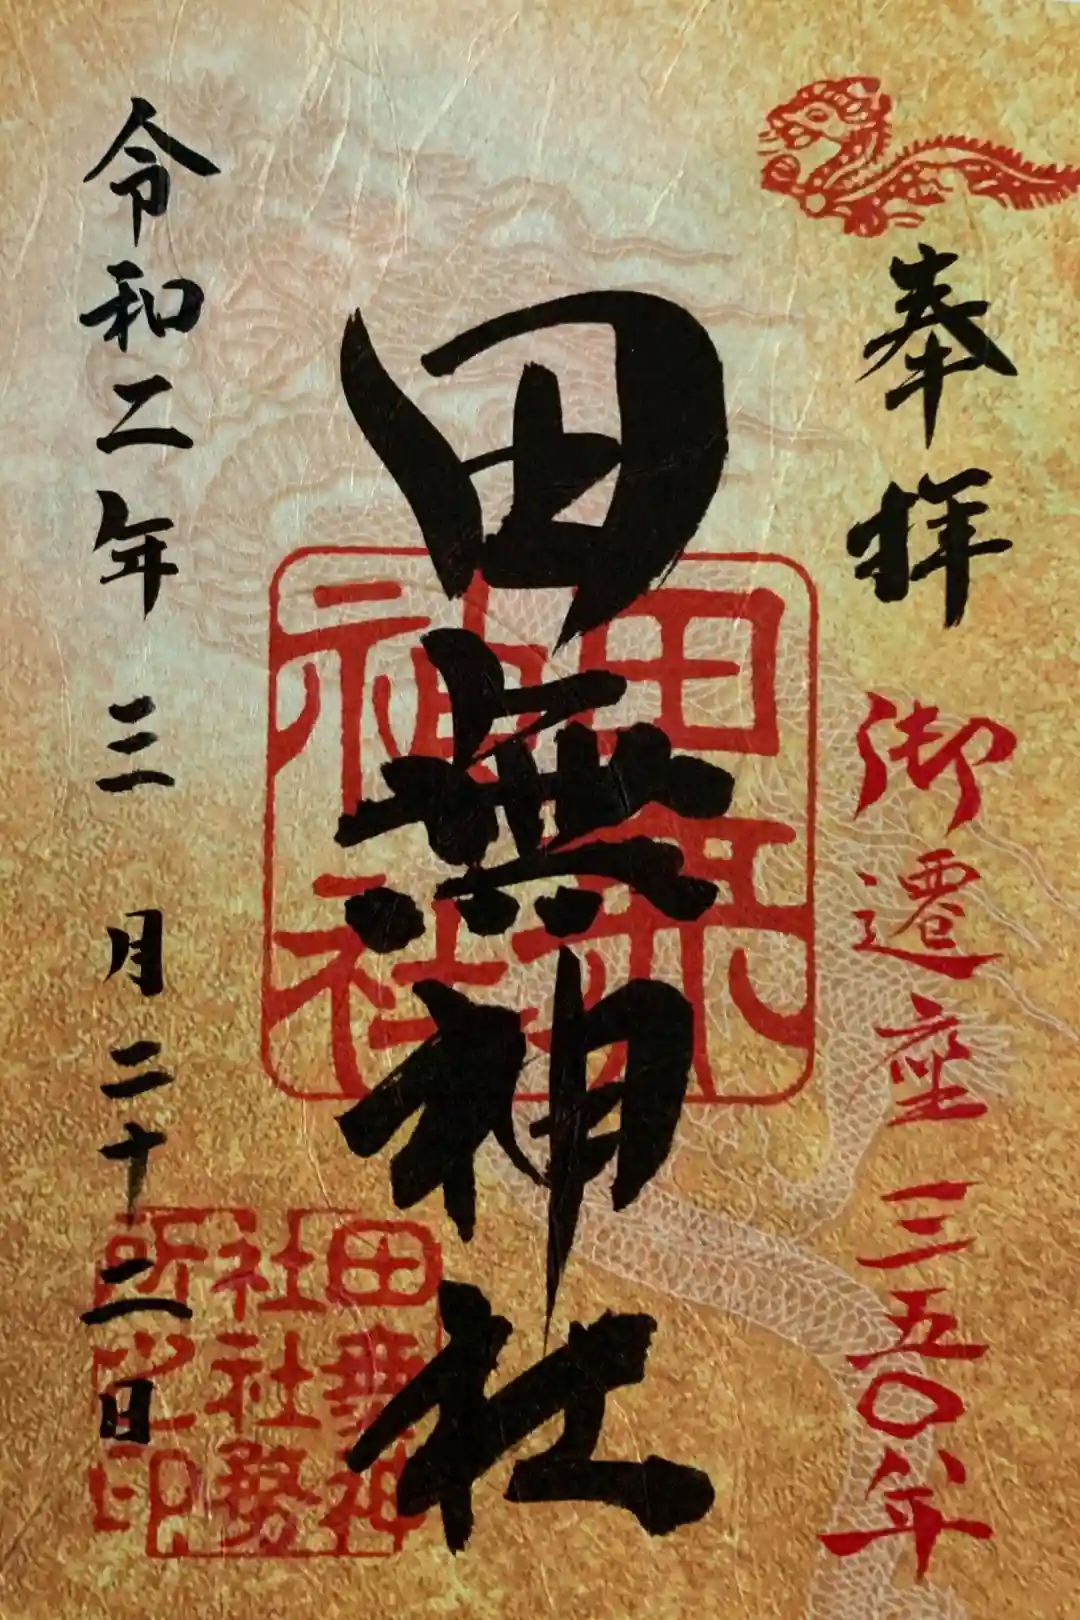 奉拝
御遷座三五〇年
田無神社
田無
神社
令和二年三月二十二日
田無神
社社務
所之印